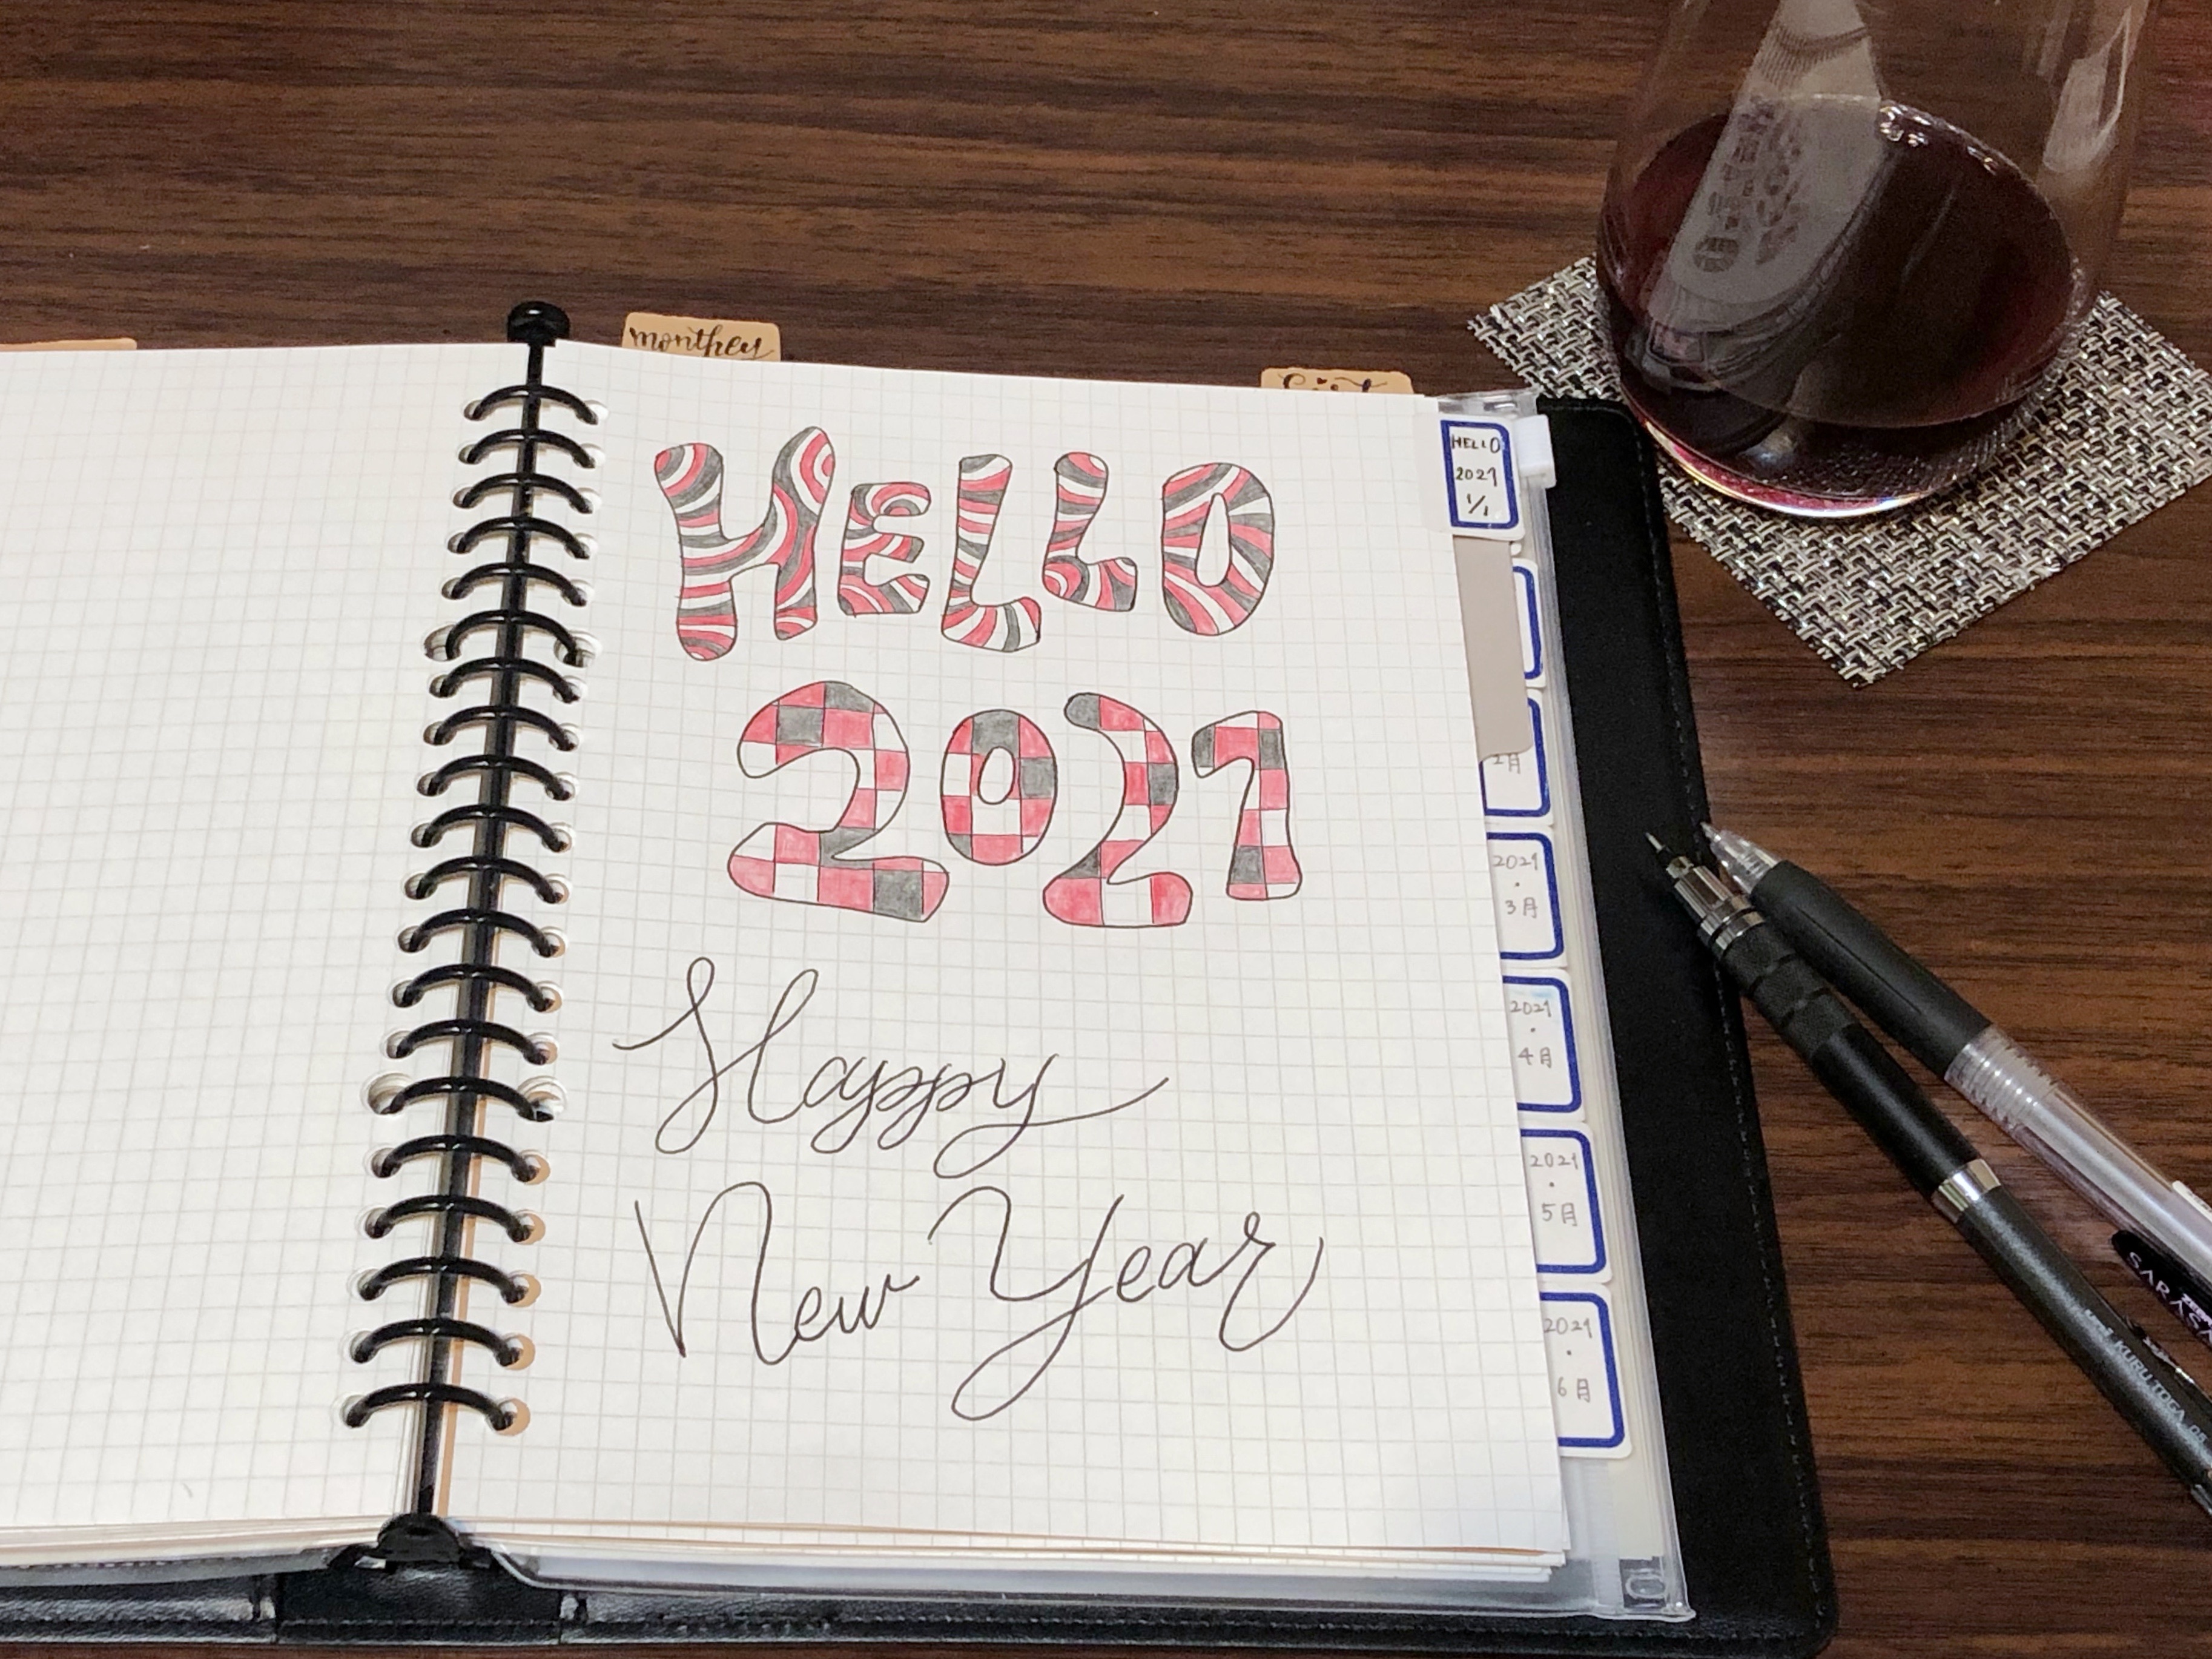 monthey
HELLO
2021
Happy
New Year
HELLO
2021
1/1
2月
2021
・
3月
2021
・
4月
2021
・
5月
2021
・
6月
SARASA
KURU TOGA